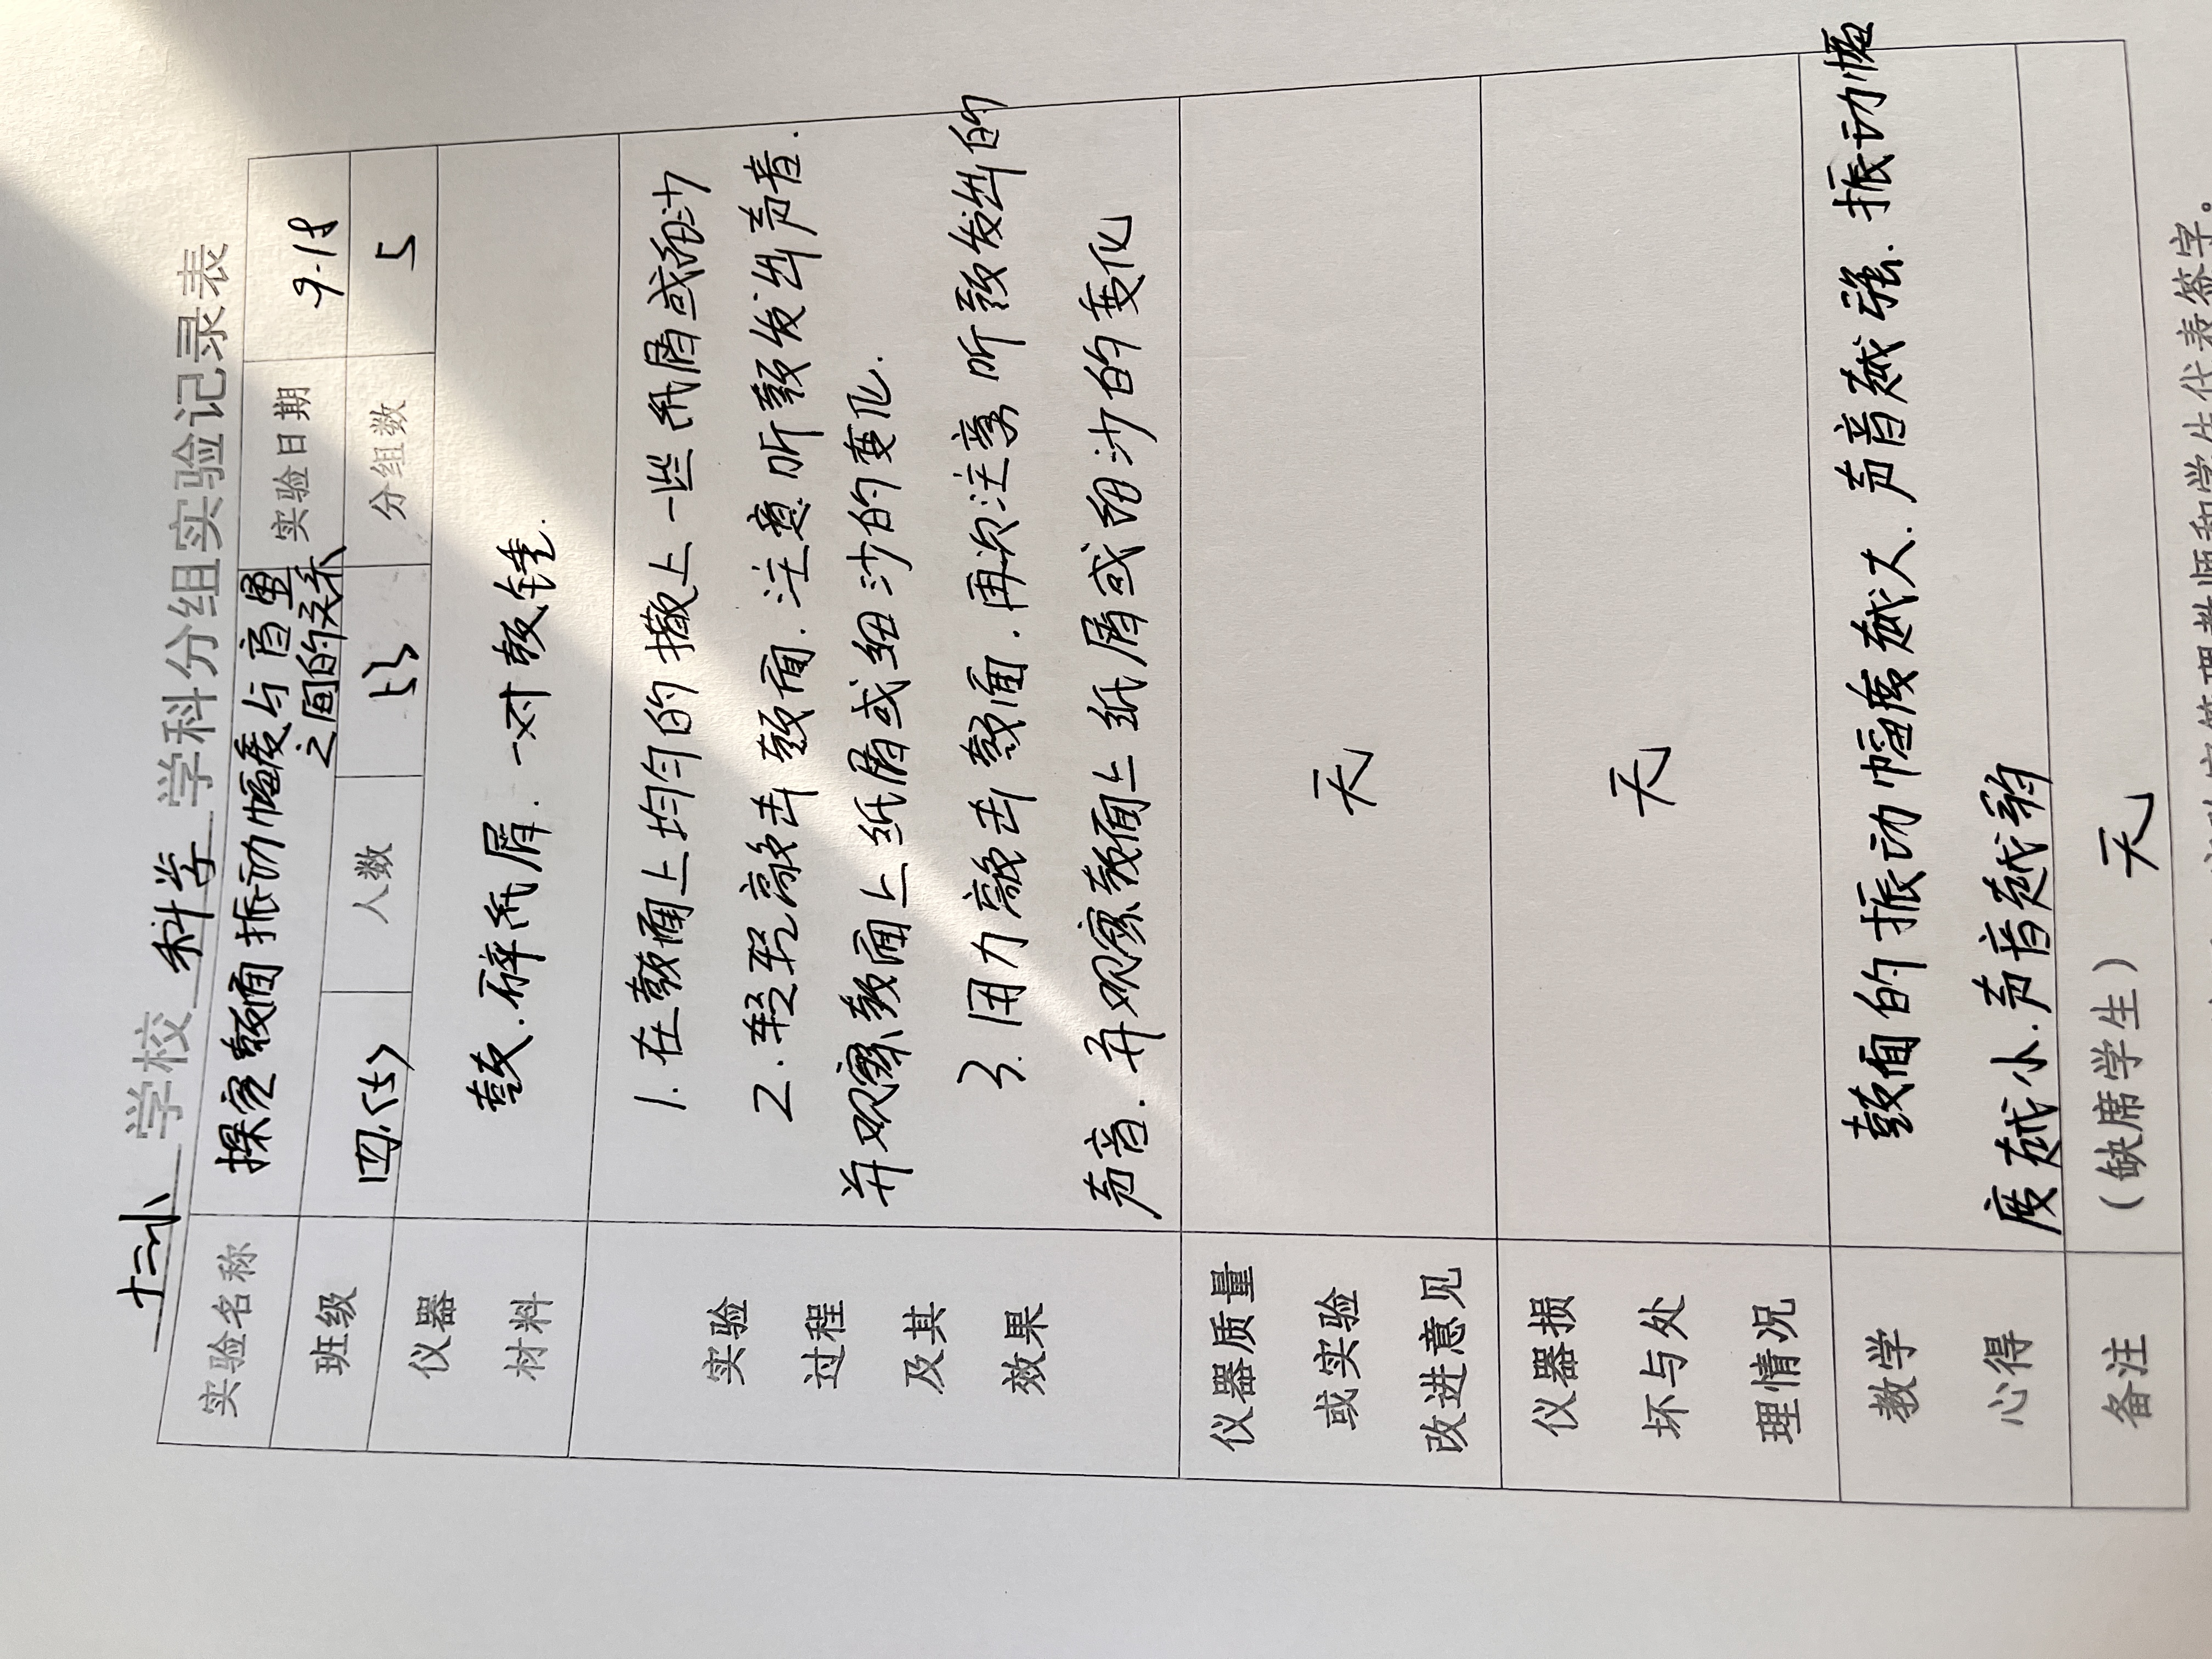 十二小 学校 科学 学科分组实验记录表
实验名称 探究鼓面振动幅度与音量之间的关系 实验日期 9.18
班级 四.(5) 人数 53 分组数 5
仪器材料 鼓.碎纸屑.一对鼓锤.
实验过程及其效果
1.在鼓面上均匀的撒上一些纸屑或细沙
2.轻轻敲击鼓面.注意听鼓发出声音.
并观察鼓面上纸屑或细沙的变化.
3.用力敲击鼓面.再次注意听鼓发出的
声音.并观察鼓面上纸屑或细沙的变化
仪器质量或实验改进意见 无
仪器损坏与处理情况 无
教学心得 鼓面的振动幅度越大.声音越强.振动幅
度越小.声音越弱
备注 (缺席学生) 无
管理教师和学生代表签字。